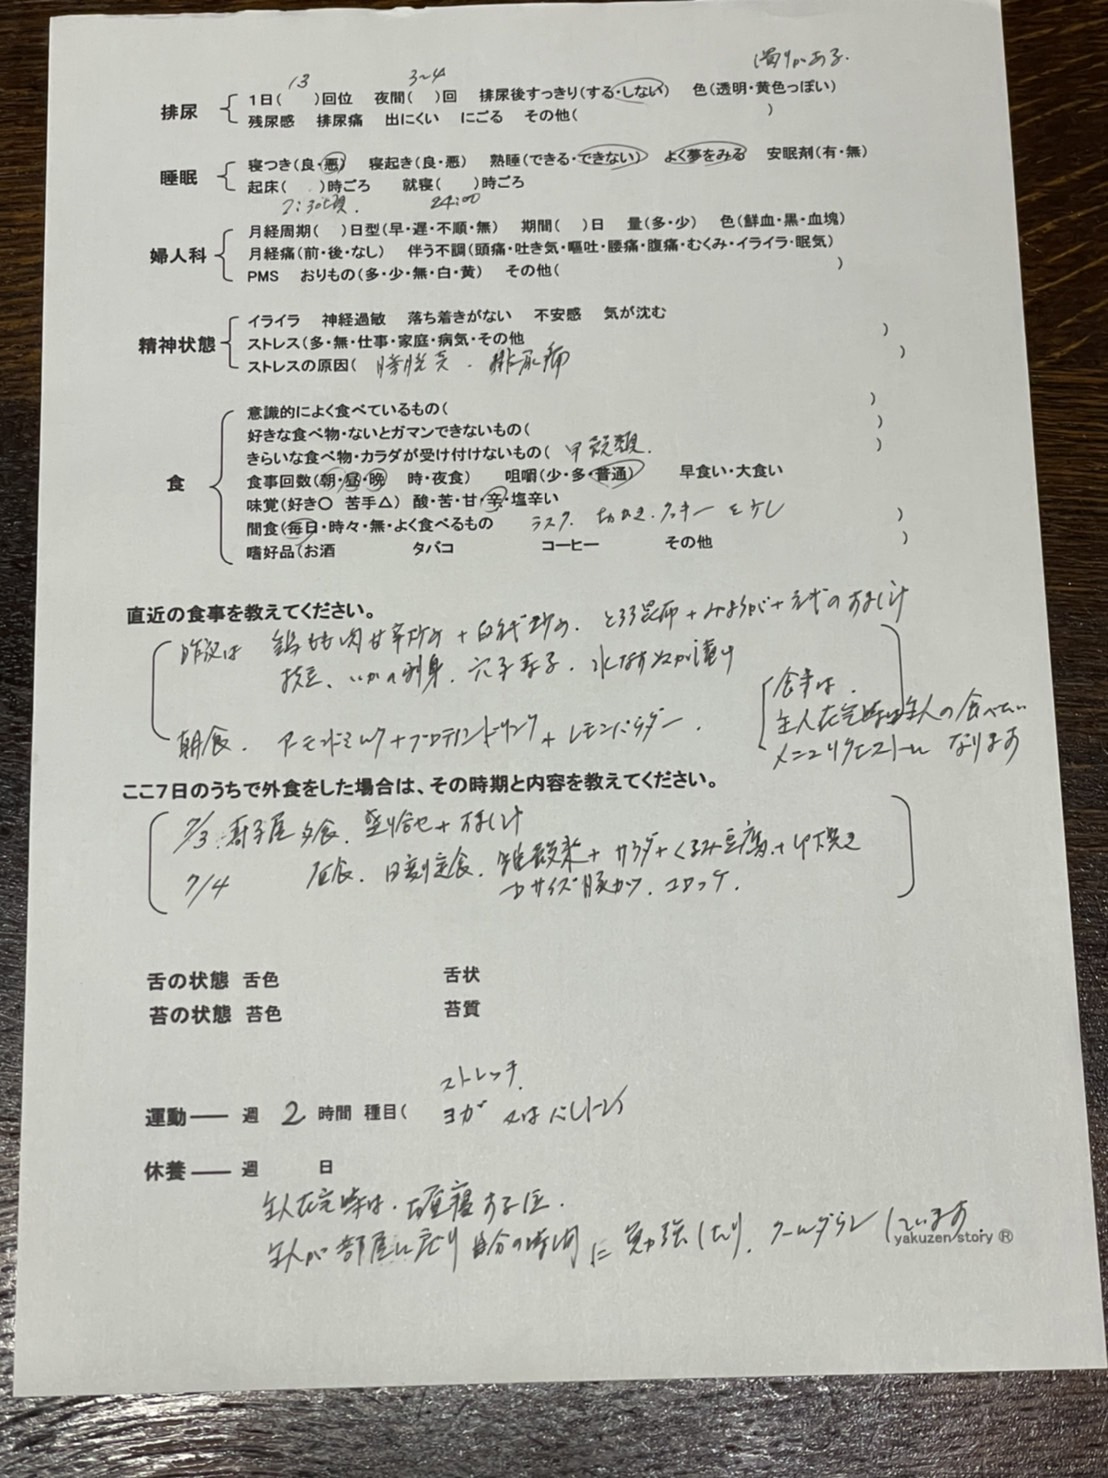 濁りがある.
13　3〜4
排尿 1日(　)回位　夜間(　)回　排尿後すっきり(する・しない)　色(透明・黄色っぽい)
残尿感　排尿痛　出にくい　にごる　その他(　)
睡眠 寝つき(良・悪)　寝起き(良・悪)　熟睡(できる・できない)　よく夢をみる　安眠剤(有・無)
起床(　)時ごろ　就寝(　)時ごろ
7:30頃.　24:00
婦人科 月経周期(　)日型(早・遅・不順・無)　期間(　)日　量(多・少)　色(鮮血・黒・血塊)
月経痛(前・後・なし)　伴う不調(頭痛・吐き気・嘔吐・腰痛・腹痛・むくみ・イライラ・眠気)
PMS　おりもの(多・少・無・白・黄)　その他(　)
精神状態 イライラ　神経過敏　落ち着きがない　不安感　気が沈む
ストレス(多・無・仕事・家庭・病気・その他　)
ストレスの原因(膀胱炎.排尿痛　)
食 意識的によく食べているもの(　)
好きな食べ物・ないとガマンできないもの(　)
きらいな食べ物・カラダが受け付けないもの(甲殻類.　)
食事回数(朝・昼・晩　時・夜食)　咀嚼(少・多・普通)　早食い・大食い
味覚(好き〇　苦手△)　酸・苦・甘・辛・塩辛い
間食(毎日・時々・無・よく食べるもの　ラスク.　クッキーを少し　)
嗜好品(お酒　タバコ　コーヒー　その他　)
直近の食事を教えてください。
昨夜は　鶏もも肉甘辛炒め+白ネギ炒め.　とろろ昆布+みょうが+ネギのすまし汁
枝豆、いかの刺身.穴子寿子.水なす
食事は.
主人在宅時は主人の食べたい
朝食.　アーモンドミルク+プロテインドリンク+レモンパウダー.
メニューリクエストになります
ここ7日のうちで外食をした場合は、その時期と内容を教えてください。
7/3.寿子屋夕食.盛り合せ+すまし汁
7/4　昼食.日替り定食.雑穀米+サラダ+くるみ豆腐+卵焼き
小サイズ豚カツ.コロッケ.
舌の状態　舌色　舌状
苔の状態　苔色　苔質
ストレッチ.
運動── 週 2 時間 種目(ヨガ 又は
休養── 週　日
主人在宅時は.お昼寝する位.
主人が部屋に戻り自分の時間に勉強したり.クールダウンしています.
yakuzen story ®